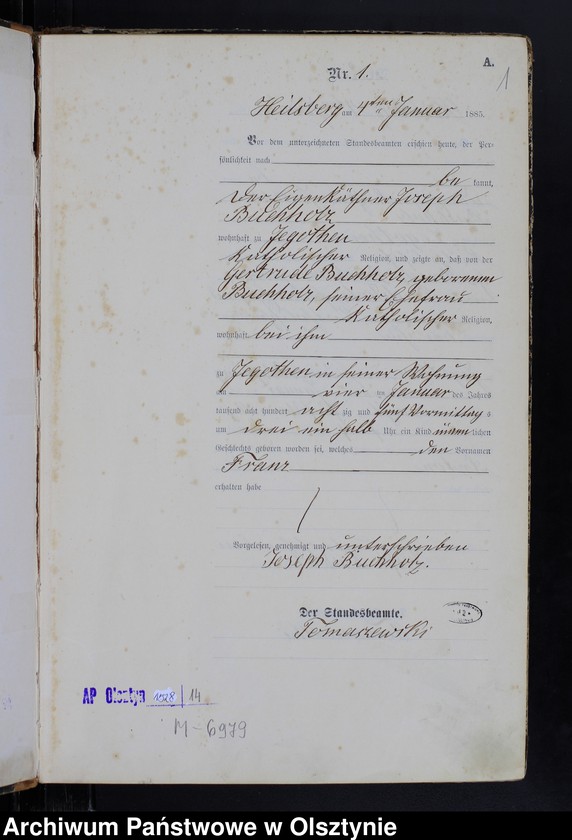 A.
1
Nr. 1.
Heilsberg am 4ten Januar 1885.
Vor dem unterzeichneten Standesbeamten erschien heute, der Per-
sönlichkeit nach
be kannt,
der Eigenkäthner Joseph
Buchholz
wohnhaft zu Jegothen
Katholischer Religion, und zeigte an, daß von der
Gertrude Buchholz, geborenen
Buchholz, seiner Ehefrau
Katholischer Religion,
wohnhaft bei ihm
zu Jegothen in seiner Wohnung
am vier ten Januar des Jahres
tausend acht hundert acht zig und fünf Vormittag s
um drei ein halb Uhr ein Kind männ lichen
Geschlechts geboren worden sei, welches den Vornamen
Franz
erhalten habe
Vorgelesen, genehmigt und unterschrieben
Joseph Buchholz.
Der Standesbeamte.
Tomaszewski
AP Olsztyn 1528 14
M-6979
Archiwum Państwowe w Olsztynie